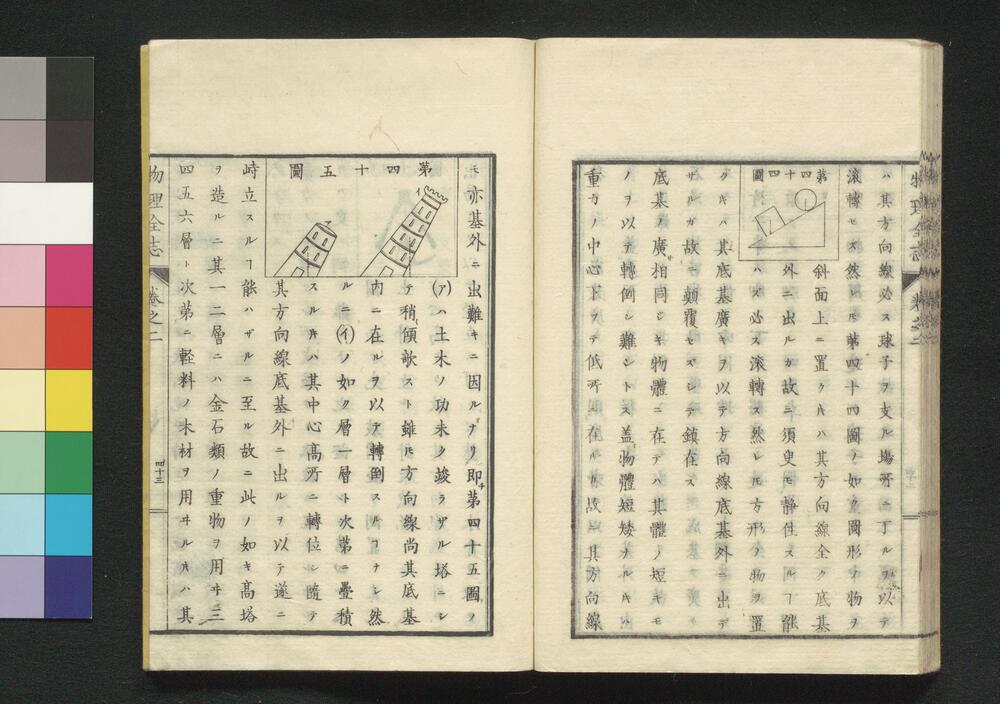 物理全志
卷之二
ハ其方向線必ス球子ヲ支ル場所ニ丁ルヲ以テ
滾轉セス然レ𪜈第四十四圖ノ如ク圓形ノ物ヲ
第四十四圖
斜面上ニ置ク𪜈ハ其方向線全ク底基
外ニ出ルカ故ニ須臾モ静住スルヿ能
ハズ必ス滾轉ス然レ𪜈方形ノ物ヲ置
クキハ其底基廣キヲ以テ方向線底基外ニ出デ
ザルガ故ニ顛覆セズシテ鎮在ス
底基ノ廣相同シキ物體ニ在テハ其體ノ短キモ
ノヲ以テ轉倒シ難シトス盖物體短矮ナルキハ
重力ノ中心下ツテ低所ニ在ルカ故ニ其方向線
モ亦基外ニ出難キニ因ルナリ即第四十五圖ノ
第四十五圖
イ
(ア)ハ土木ノ功未タ竣ラザル塔ニシ
テ稍傾欹スト雖𪜈方向線尚其底基
内ニ在ルヲ以テ轉倒スルヿナシ然
ルニ(イ)ノ如ク層一層ト次第ニ疊積
スルキハ其中心高所ニ轉位シ隨テ
其方向線底基外ニ出ルヲ以テ遂ニ
峙立スルヿ能ハザルニ至ル故ニ此ノ如キ高塔
ヲ造ルニ其一二層ニハ金石類ノ重物ヲ用ヰ三
四五六層ト次第ニ軽料ノ木材ヲ用ヰルキハ其
物理全志
卷之二
四十三